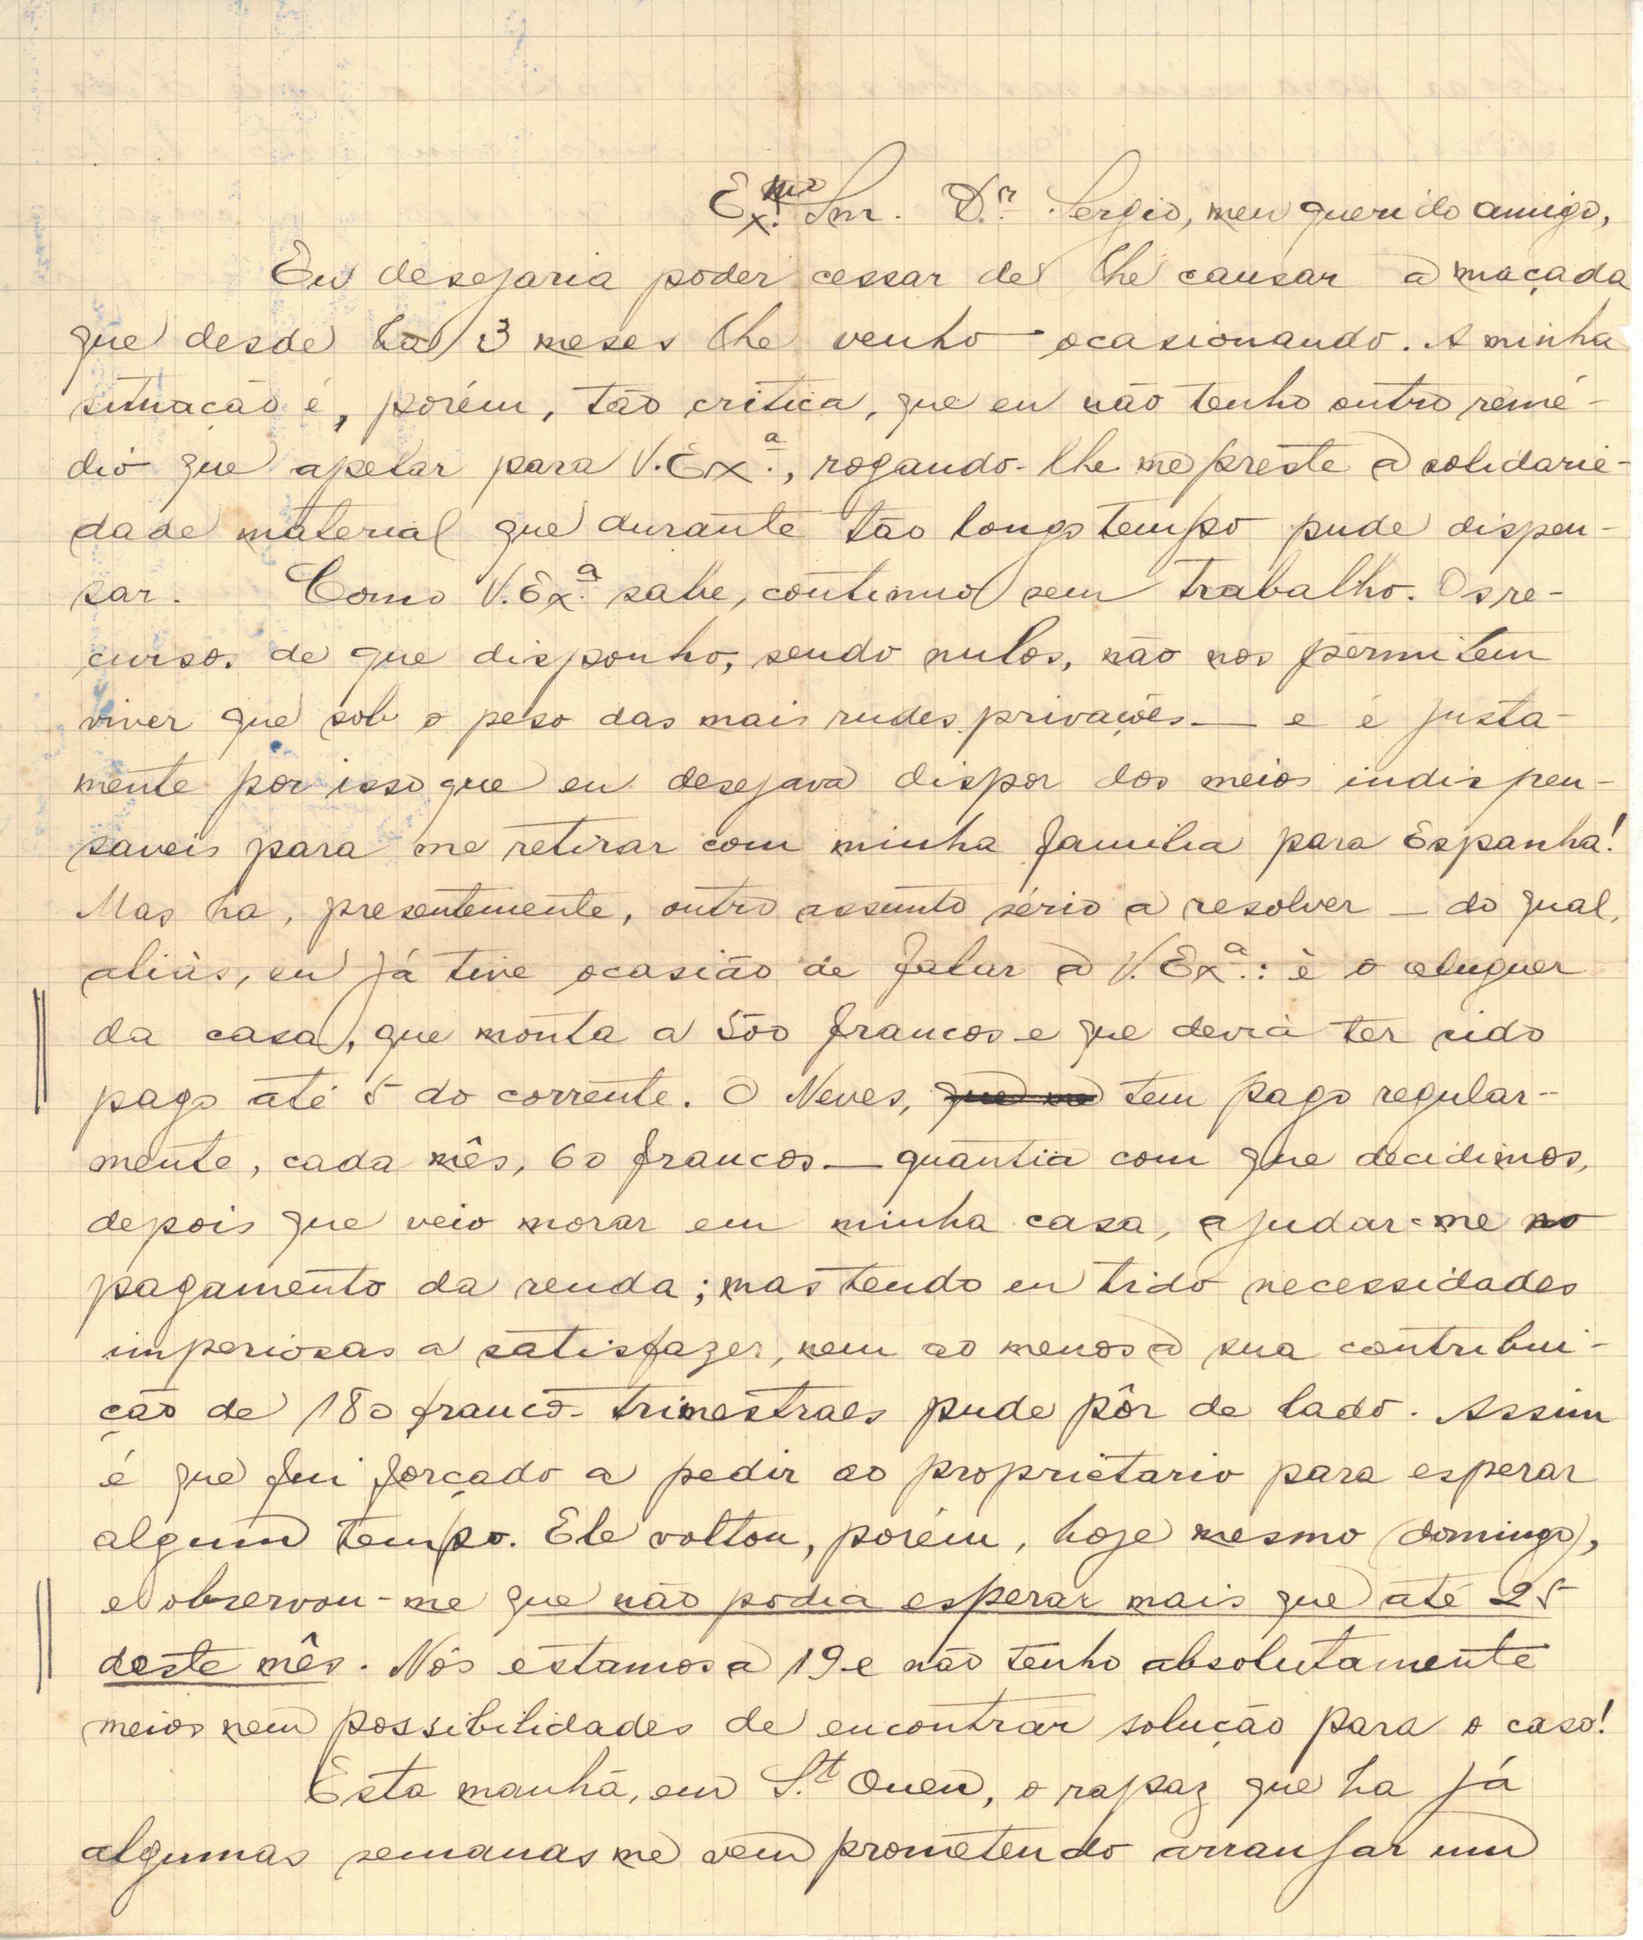 Ex.mo Snr. D.r Sergio, meu querido amigo,
Eu desejaria poder cessar de lhe causar a maçada
que desde ha 3 meses lhe venho ocasionando. A minha
situação é, porém, tão critica, que eu não tenho outro remé-
dio que apelar para V. Ex.a, rogando-lhe me preste a solidarie-
dade material que durante tão longo tempo pude dispen-
sar. Como V. Ex.a sabe, continuo sem trabalho. Os re-
cursos de que disponho, sendo nulos, não nos permitem
viver que sob o peso das mais rudes privações — e é justa-
mente por isso que eu desejava dispor dos meios indispen-
saveis para me retirar com minha familia para Espanha!
Mas ha, presentemente, outro assunto sério a resolver — do qual,
aliás, eu já tive ocasião de falar a V. Ex.a: é o aluguer
da casa, que monta a 500 francos e que devia ter sido
pago até 5 do corrente. O Neves, que me tem pago regular-
mente, cada mês, 60 francos — quantia com que decidimos,
depois que veio morar em minha casa, ajudar-me no
pagamento da renda; mas tendo eu tido necessidades
imperiosas a satisfazer, nem ao menos a sua contribui-
ção de 180 francos trimestraes pude pôr de lado. Assim
é que fui forçado a pedir ao proprietario para esperar
algum tempo. Ele voltou, porém, hoje mesmo (domingo),
e observou-me que não podia esperar mais que até 25
deste mês. Nós estamos a 19 e não tenho absolutamente
meios nem possibilidades de encontrar solução para o caso!
Esta manhã, em S.t Ouen, o rapaz que ha já
algumas semanas me vem prometendo arranjar um